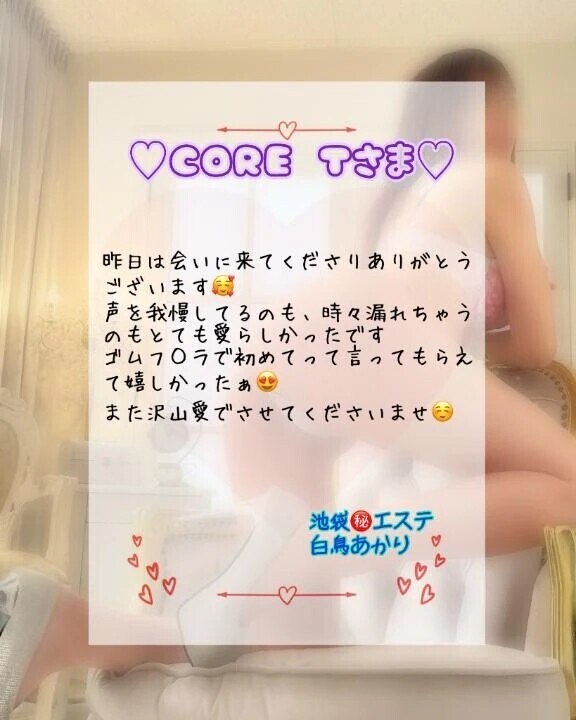 ♡CORE Tさま♡
昨日は会いに来てくださりありがとう
ございます🥰
声を我慢してるのも、時々漏れちゃう
のもとても愛らしかったです
ゴムフ〇ラで初めてって言ってもらえ
て嬉しかったぁ😍
また沢山愛でさせてくださいませ☺️
池袋㊙️エステ
白鳥あかり